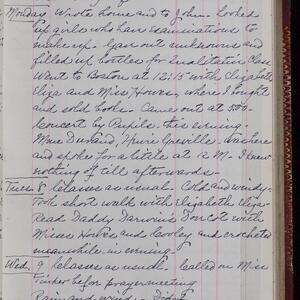 Monday Wrote home and to John. Looked
up girls who have examinations to
make up. Gave out unknowns and
filled up bottles for Qualitative Class
Went to Boston at 12:15 with Elizabeth
Eliza and Miss Howes, where I bought
and sold books. Came out at 5:00.
Concert by Pupils this evening.
Mme Durand, Henri Greville, was here
and spoke for a little at 12 M. I knew
nothing of till afterwards.
Tues. 8 Classes as usual. Cold and windy.
Took short walk with Elizabeth Eliza.
Read Daddy Darwin's Dovcot with
Misses Howes and Cooley and crocheted
meanwhile in evening.
Wed. 9 Classes as usual. Called on Miss
before prayer meeting
Rain and wind. Didn't